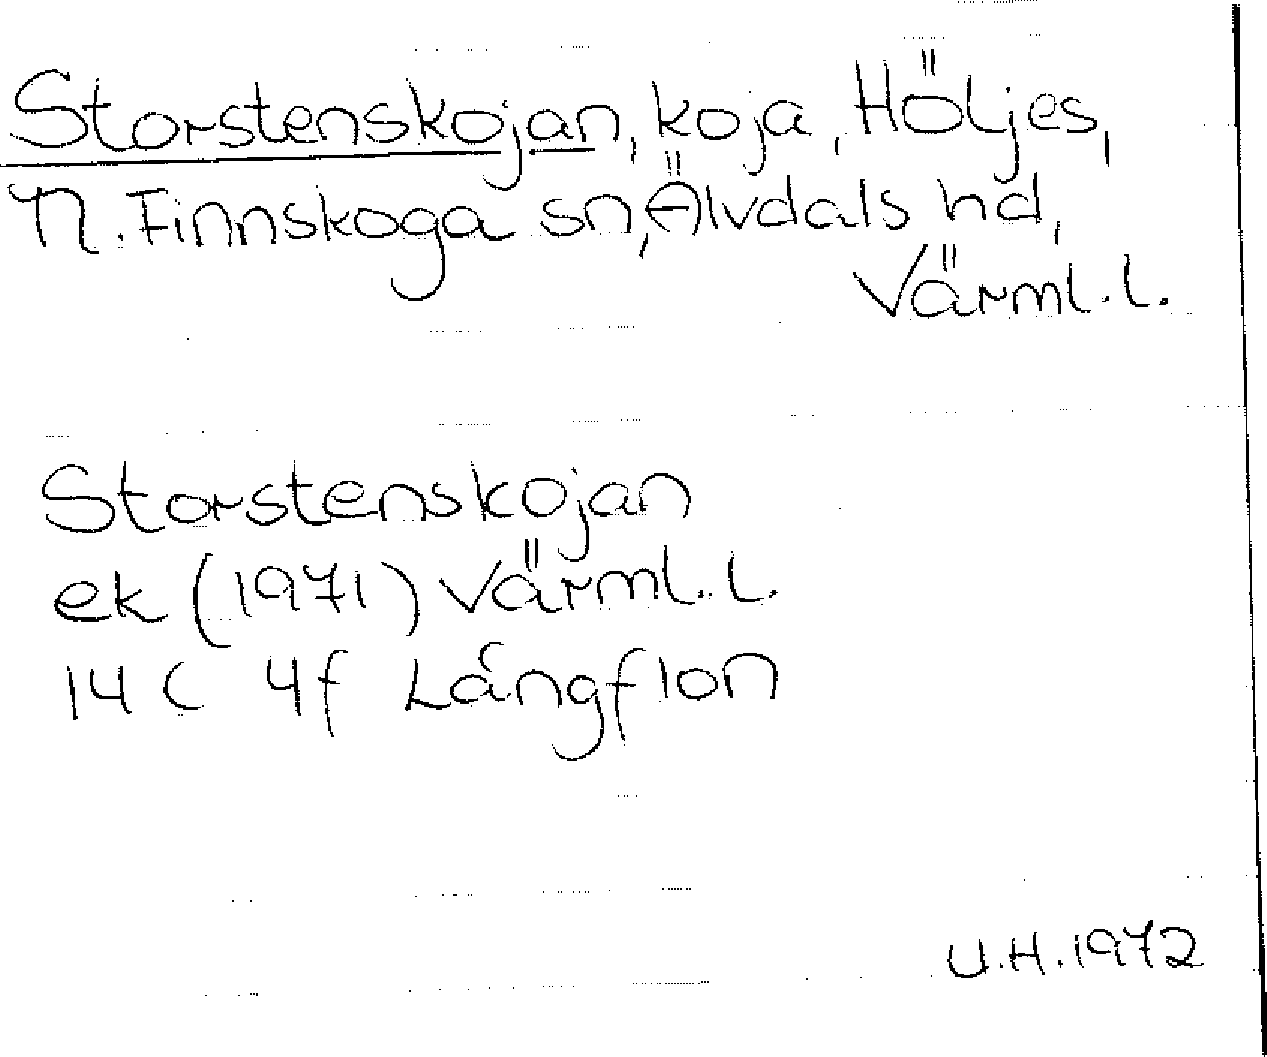 Storstenskojan, koja, Höljes,
N. Finnskoga sn, Älvdals hd,
Värml. l.
Storstenskojan
ek (1971) Värml. l.
14 C 4f Långflon
U.H. 1972